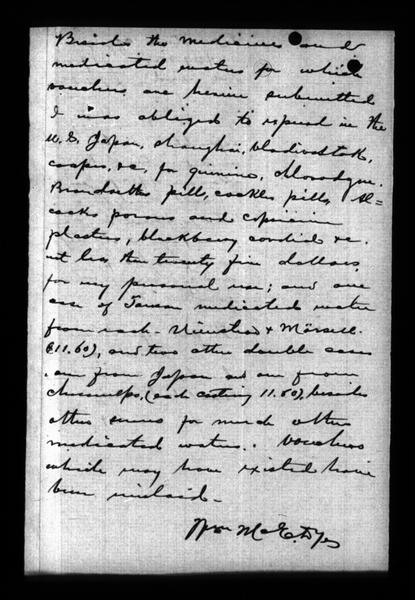 Besides the medicines and
medicated waters for which
vouchers are herein submitted
I was obliged to expend in the
U.S, Japan, Shanghai, Vladivostok,
&c, for quinine, Chlorodyne,
Brandreths pills, cockles pills, Al=
cocks porous and capsicum
plasters, blackberry cordial &c.
not less than twenty five dollars,
for my personal use; and one
case of Tansan medicated water
from each
(11.60), and two other double cases
one from Japan and one from
Chemulpo, (each costing 11.60), besides
other sums for much other
medicated waters. Vouchers
which may have existed have
been mislaid.
Wm McE. Dye